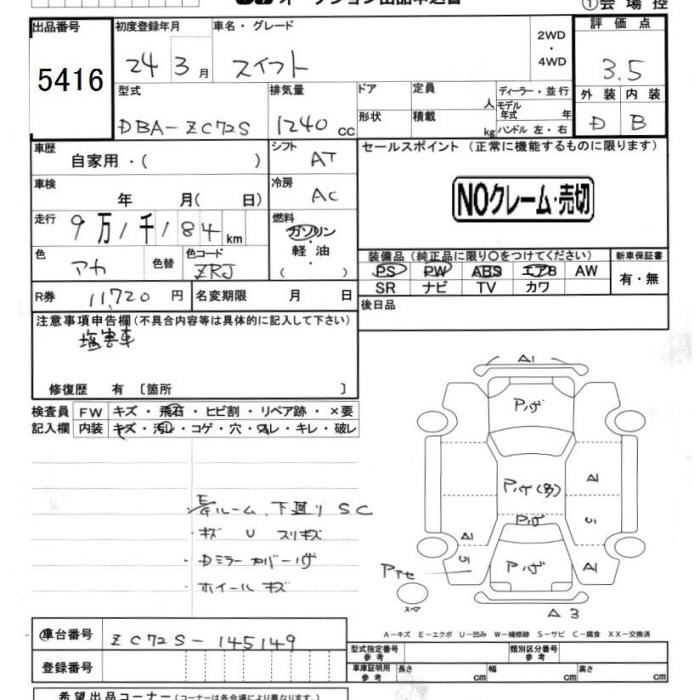 オークション出品申込書
①会場控
出品番号
5416
初度登録年月
24 3月
車名・グレード
スイフト
2WD
・
4WD
評価点
3.5
外装 内装
D B
型式
DBA-ZC72S
排気量
1240 cc
ドア
形状
定員
人
積載
kg
ディーラー・並行
モデル年式 年
ハンドル 左・右
車歴
自家用・( )
シフト
AT
車検
年 月( 日)
冷房
AC
走行
9万1千184 km
燃料
ガソリン
・
軽油
( )
色
アカ
色替
色コード
ZRJ
R券 11,720 円
名変期限 月 日
セールスポイント (正常に機能するものに限ります)
NOクレーム・売切
装備品(純正品に限り○をつけてください)
PS PW ABS エアB AW
SR ナビ TV カワ
新車保証書
有・無
後日品
注意事項申告欄(不具合内容等は具体的に記入して下さい)
塩害車
修復歴 有 〔箇所 〕
検査員記入欄
FW キズ・飛石・ヒビ割・リペア跡・×要
内装 キズ・汚レ・コゲ・穴・スレ・キレ・破レ
ルーム、下廻り SC
・キズ U スリキズ
・Dミラーカバーハゲ
・ホイールキズ
A1
Pハゲ
Pハゲ(多)
Pハゲ
Pハゲ
A1
A1
A1
Pアセ
スペア
A3
A-キズ E-エクボ U-凹み W-補修跡 S-サビ C-腐食 XX-交換済
車台番号
ZC72S-145149
登録番号
型式指定番号 参考
類別区分番号 参考
車庫証明用 参考
長さ cm
幅 cm
高さ cm
希望出品コーナー(コーナーは各会場により異なります。)